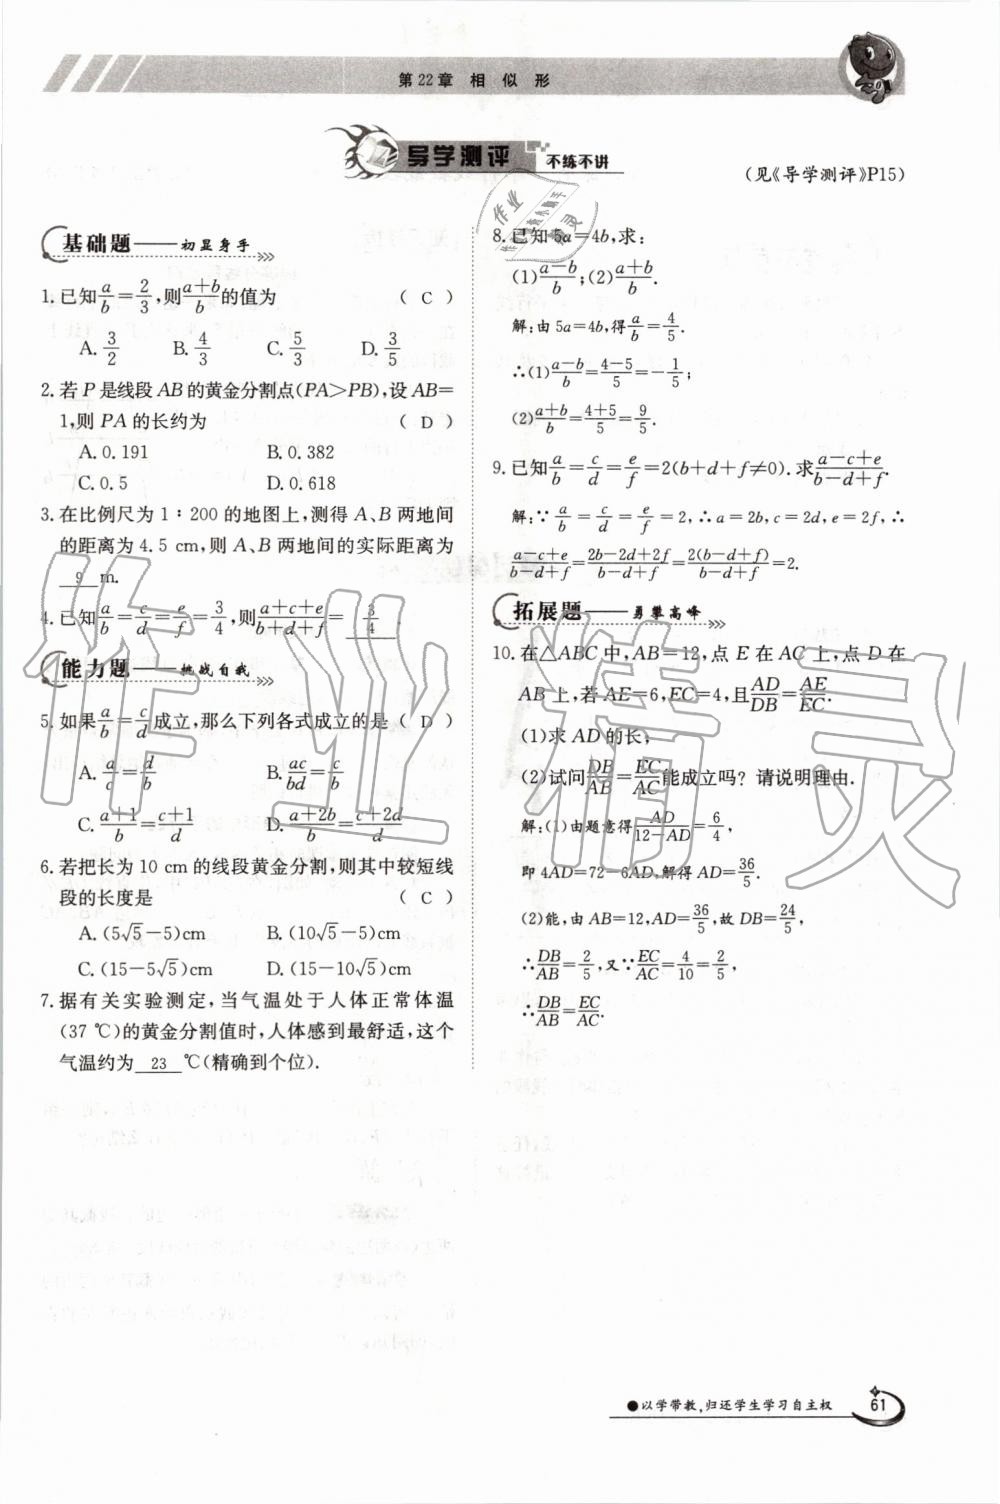 第22章 相似形
导学测评 不练不讲
(见《导学测评》P15)
基础题——初显身手
1.已知a/b=2/3,则(a+b)/b的值为 ( C )
A.3/2 B.4/3 C.5/3 D.3/5
2.若P是线段AB的黄金分割点(PA>PB),设AB=
1,则PA的长约为 ( D )
A.0.191 B.0.382
C.0.5 D.0.618
3.在比例尺为1∶200的地图上,测得A、B两地间
的距离为4.5 cm,则A、B两地间的实际距离为
9 m.
4.已知a/b=c/d=e/f=3/4,则(a+c+e)/(b+d+f)= 3/4 .
能力题——挑战自我
5.如果a/b=c/d成立,那么下列各式成立的是 ( D )
A.a/c=d/b B.ac/bd=c/b
C.(a+1)/b=(c+1)/d D.(a+2b)/b=(c+2d)/d
6.若把长为10 cm的线段黄金分割,则其中较短线
段的长度是 ( C )
A.(5√5-5)cm B.(10√5-5)cm
C.(15-5√5)cm D.(15-10√5)cm
7.据有关实验测定,当气温处于人体正常体温
(37 ℃)的黄金分割值时,人体感到最舒适,这个
气温约为 23 ℃(精确到个位).
8.已知5a=4b,求:
(1)(a-b)/b;(2)(a+b)/b.
解:由5a=4b,得a/b=4/5.
∴(1)(a-b)/b=(4-5)/5=-1/5;
(2)(a+b)/b=(4+5)/5=9/5.
9.已知a/b=c/d=e/f=2(b+d+f≠0).求(a-c+e)/(b-d+f).
解:∵a/b=c/d=e/f=2,∴a=2b,c=2d,e=2f,∴
(a-c+e)/(b-d+f)=(2b-2d+2f)/(b-d+f)=2(b-d+f)/(b-d+f)=2.
拓展题——勇攀高峰
10.在△ABC中,AB=12,点E在AC上,点D在
AB上,若AE=6,EC=4,且AD/DB=AE/EC.
(1)求AD的长;
(2)试问DB/AB=EC/AC能成立吗?请说明理由.
解:(1)由题意得AD/(12-AD)=6/4,
即4AD=72-6AD,解得AD=36/5.
(2)能,由AB=12,AD=36/5,故DB=24/5,
∴DB/AB=2/5,又∵EC/AC=4/10=2/5,
∴DB/AB=EC/AC.
作业精灵
●以学带教,归还学生学习自主权 61